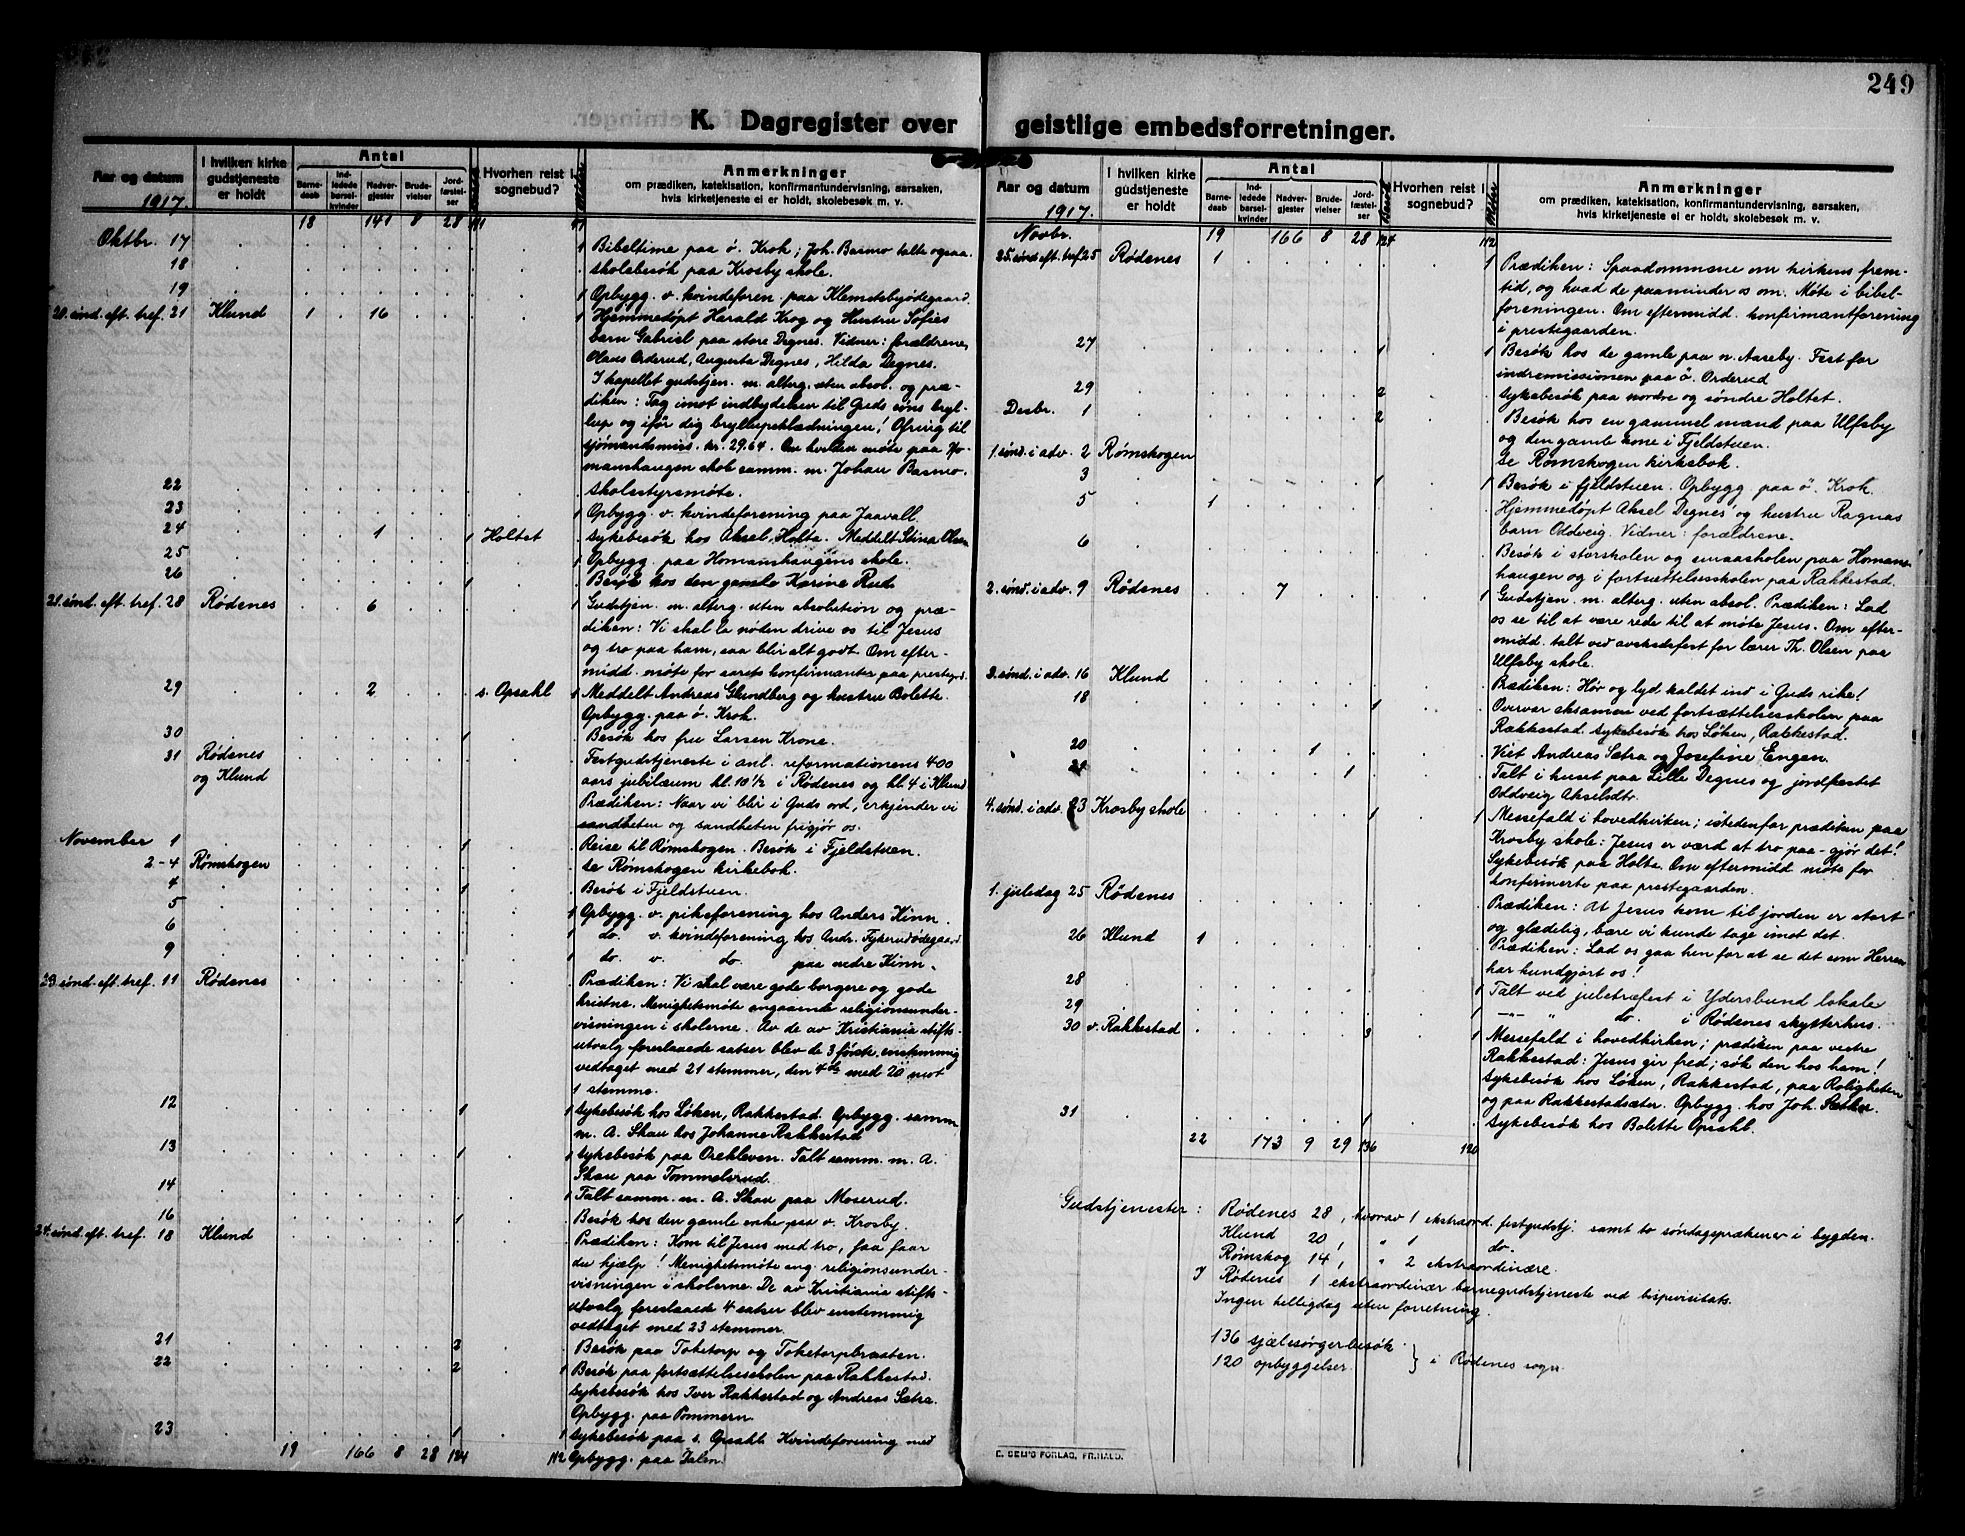 249
K. Dagregister over
Aar og datum
1917.
I hvilken kirke
gudstjeneste
er holdt
Antal
Barne-
daab
Ind-
ledede
barsel-
kvinder
Nadver-
gjester
Brude-
vielser
Jord-
fæstel-
ser
Hvorhen reist i
sognebud?
Anmerkninger
om prædiken, katekisation, konfirmantundervisning, aarsaken,
hvis kirketjeneste ei er holdt, skolebesøk m. v.
18 141 8 28
Oktbr. 17 1 Bibeltime paa ö. Krok; Joh. Basmo talte ogsaa.
18 Skolebesök paa Krosby skole.
19 1 Opbygg. v. kvindeforen. paa Klemetsbyödegaard.
20. sönd. eft. tref. 21 Klund 1 16 1 Hjemmedöpt Harald Krog og Hustru Sofies
barn Gabriel paa store Degnes. Vidner: forældrene,
Olaus Orderud, Augusta Degnes, Hilda Degnes.
I kapellet gudstjen. m. alterg. uten absol. og præ-
diken: Tag imot indbydelsen til Guds söns bryl-
lup og iför dig bryllupsklædningen! Ofring til
sjömandsmiss. kr. 29,64. Om kvelden möte paa Ho-
manshaugen skole samm. m. Johan Basmo.
22 Skolestyremöte.
23 1 Opbygg. v. kvindeforening paa Jaavall.
24 1 1 Holtet Sykebesök hos Aksel Holte. Meddelt Stina Olsen
25 1 Opbygg. paa Homanshaugens skole.
26 1 Besök hos den gamle Karine Rud.
21. sönd. eft. tref. 28 Rödenes 6 1 Gudstjen. m. alterg. uten absolution og præ-
diken: Vi skal la nöden drive os til Jesus
og tro paa ham, saa blir alt godt. Om efter-
midd. möte for aarets konfirmanter paa prestegrd.
29 2 s. Opsahl 1 Meddelt Andreas Glundberg og hustru Bolette.
Opbygg. paa ö. Krok.
30 1 Besök hos fru Larsen Krone.
31 Rödenes
og Klund
Festgudstjeneste i anl. reformationens 400
aars jubilæum kl. 10½ i Rödenes og kl. 4 i Klund
Prædiken: Naar vi blir i Guds ord, erkjender vi
sandheten og sandheten frigjör os.
November 1 1 Reise til Römskogen. Besök i Fjeldstuen.
2-4 Römskogen Se Römskogen kirkebok.
4 1 Besök i Fjeldstuen.
5 1 Opbygg. v. pikeforening hos Anders Kinn.
6 1 do. v. kvindeforening hos Andr. Fykerudödegaard
9 1 do. v. do. paa nedre Kinn.
23. sönd. eft. tref. 11 Rödenes Prædiken: Vi skal være gode borgere og gode
kristne. Menighetsmöte angaaende religionsunder-
visningen i skolerne. Av de av Kristiania stifts-
utvalg foreslaaede satser blev de 3 förste enstemmig
vedtaget med 21 stemmer, den 4de med 20 mot
1 stemme.
12 1 1 Sykebesök hos Löken, Rakkestad. Opbygg. samm.
m. A. Skau hos Johanne Rakkestad
13 1 1 Sykebesök paa Orekleven. Talt samm. m. A.
Skau paa Tommelsrud.
14 1 Talt samm. m. A. Skau paa Moserud.
16 1 Besök hos den gamle enke paa v. Krosby.
24. sönd. eft. tref. 18 Klund Prædiken: Kom til Jesus med tro, saa faar
du hjælp! Menighetsmöte ang. religionsunder-
visningen i skolerne. De av Kristiania stifts-
utvalg foreslaaede 4 satser blev enstemmig
vedtaget med 23 stemmer.
21 2 Besök paa Toketorp og Toketorpbraaten.
22 2 1 Besök paa fortsættelsesskolen paa Rakkestad.
Sykebesök hos Iver Rakkestad og Andreas Sætra.
Opbygg. paa Pommern.
23 1 1 Sykebesök paa s. Opsahl. Kvindeforening med
19 166 8 28 124 112 Opbygg. paa Dalen.
geistlige embedsforretninger.
Aar og datum
1917.
I hvilken kirke
gudstjeneste
er holdt
Antal
Barne-
daab
Ind-
ledede
barsel-
kvinder
Nadver-
gjester
Brude-
vielser
Jord-
fæstel-
ser
Hvorhen reist i
sognebud?
Anmerkninger
om prædiken, katekisation, konfirmantundervisning, aarsaken,
hvis kirketjeneste ei er holdt, skolebesøk m. v.
Novbr. 19 166 8 28 124 112
25. sönd. eft. tref. 25 Rödenes 1 1 Prædiken: Spaadommene om kirkens frem-
tid, og hvad de paaminder os om. Möte i bibel-
foreningen. Om eftermidd. konfirmantforening
i prestegaarden.
27 1 1 Besök hos de gamle paa n. Aaseby. Fest for
indremissionen paa ö. Orderud
29 2 Sykebesök paa nordre og söndre Holtet.
Desbr. 1 2 Besök hos en gammel mand paa Ulfsby
og den gamle kone i Fjeldstuen.
1. sönd. i adv. 2 Römskogen Se Römskogen kirkebok.
3 1 1 Besök i fjeldstuen. Opbygg. paa ö. Krok.
5 1 Hjemmedöpt Aksel Degnes' og hustru Ragnas
barn Oddveig. Vidner: forældrene.
6 Besök i storskolen og smaaskolen paa Homans-
haugen og i fortsættelsesskolen paa Rakkestad.
2. sönd. i adv. 9 Rödenes 7 1 Gudstjen. m. alterg. uten absol. Prædiken: Lad
os se til at være rede til at möte Jesus. Om efter-
midd. talt ved avskedsfest for lærer Th. Olsen paa
Ulfsby skole.
3. sönd. i adv. 16 Klund Prædiken: Hör og lyd kaldet ind i Guds rike!
18 1 Overvar eksamen ved fortsættelsesskolen paa
Rakkestad. Sykebesök hos Löken, Rakkestad.
20 1 Viet Andreas Sætra og Josefine Engen.
21 1 Talt i huset paa Lille Degnes og jordfestet
Oddveig Akselsdtr.
4. sönd. i adv. 23 Krosby skole 1 1 Messefald i hovedkirken; istedenfor prædiken paa
Krosby skole: Jesus er værd at tro paa - gjör det!
Sykebesök paa Holte. Om eftermidd möte for
konfirmerte paa prestegaarden.
1. juledag 25 Rödenes Prædiken: At Jesus kom til jorden er stort
og glædelig, bare vi kunde tage imot det.
26 Klund 1 Prædiken: Lad os gaa hen for at se det som Herren
har kundgjort os!
28 1 Talt ved juletræfest i Ydersbund lokale
29 1 do. i Rödenes skytterhus.
30 v. Rakkestad 3 1 Messefald i hovedkirken; prædiken paa vestre
Rakkestad: Jesus gir fred; sök den hos ham!
Sykebesök hos Löken, Rakkestad, paa Roligheten
og paa Rakkestadsæter. Opbygg. hos Joh. Sætker.
31 1 Sykebesök hos Bolette Opsahl.
22 173 9 29 136 120
Gudstjenester: Rödenes 28, hvorav 1 ekstraord. festgudstj. samt to söndagsprækener i bygden.
Klund 20, " 1 do.
Römskog 14, " 2 ekstraordinære.
I Rödenes 1 ekstraordinær barnegudstjeneste ved bispevisitats.
Ingen helligdag uten forretning.
136 sjælesörgerbesök
120 opbyggelser } i Rödenes sogn.
E. SEM'S FORLAG, FR.HALD.